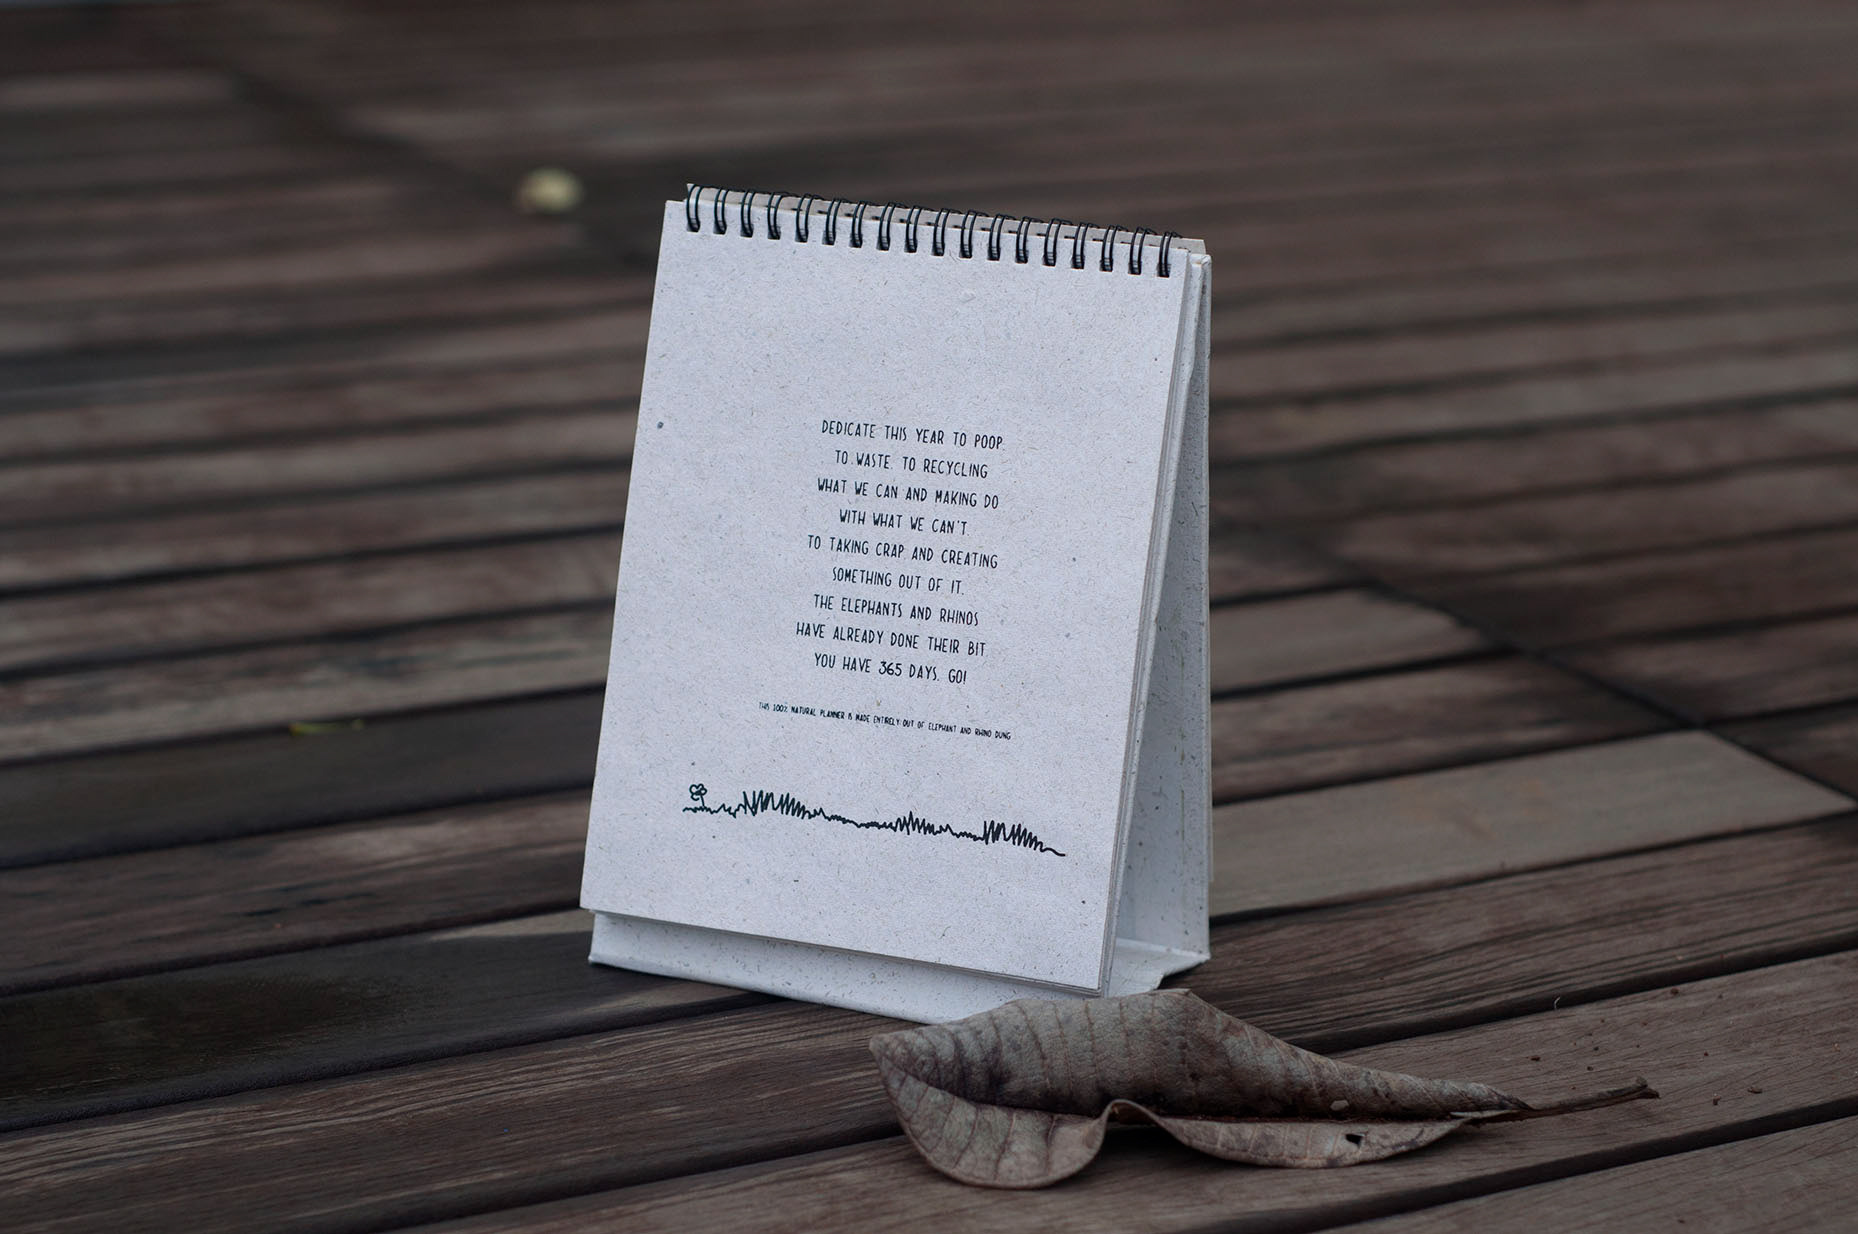 DEDICATE THIS YEAR TO POOP.
TO WASTE. TO RECYCLING
WHAT WE CAN AND MAKING DO
WITH WHAT WE CAN'T.
TO TAKING CRAP AND CREATING
SOMETHING OUT OF IT.
THE ELEPHANTS AND RHINOS
HAVE ALREADY DONE THEIR BIT.
YOU HAVE 365 DAYS. GO!
THIS 100% NATURAL PLANNER IS MADE ENTIRELY OUT OF ELEPHANT AND RHINO DUNG